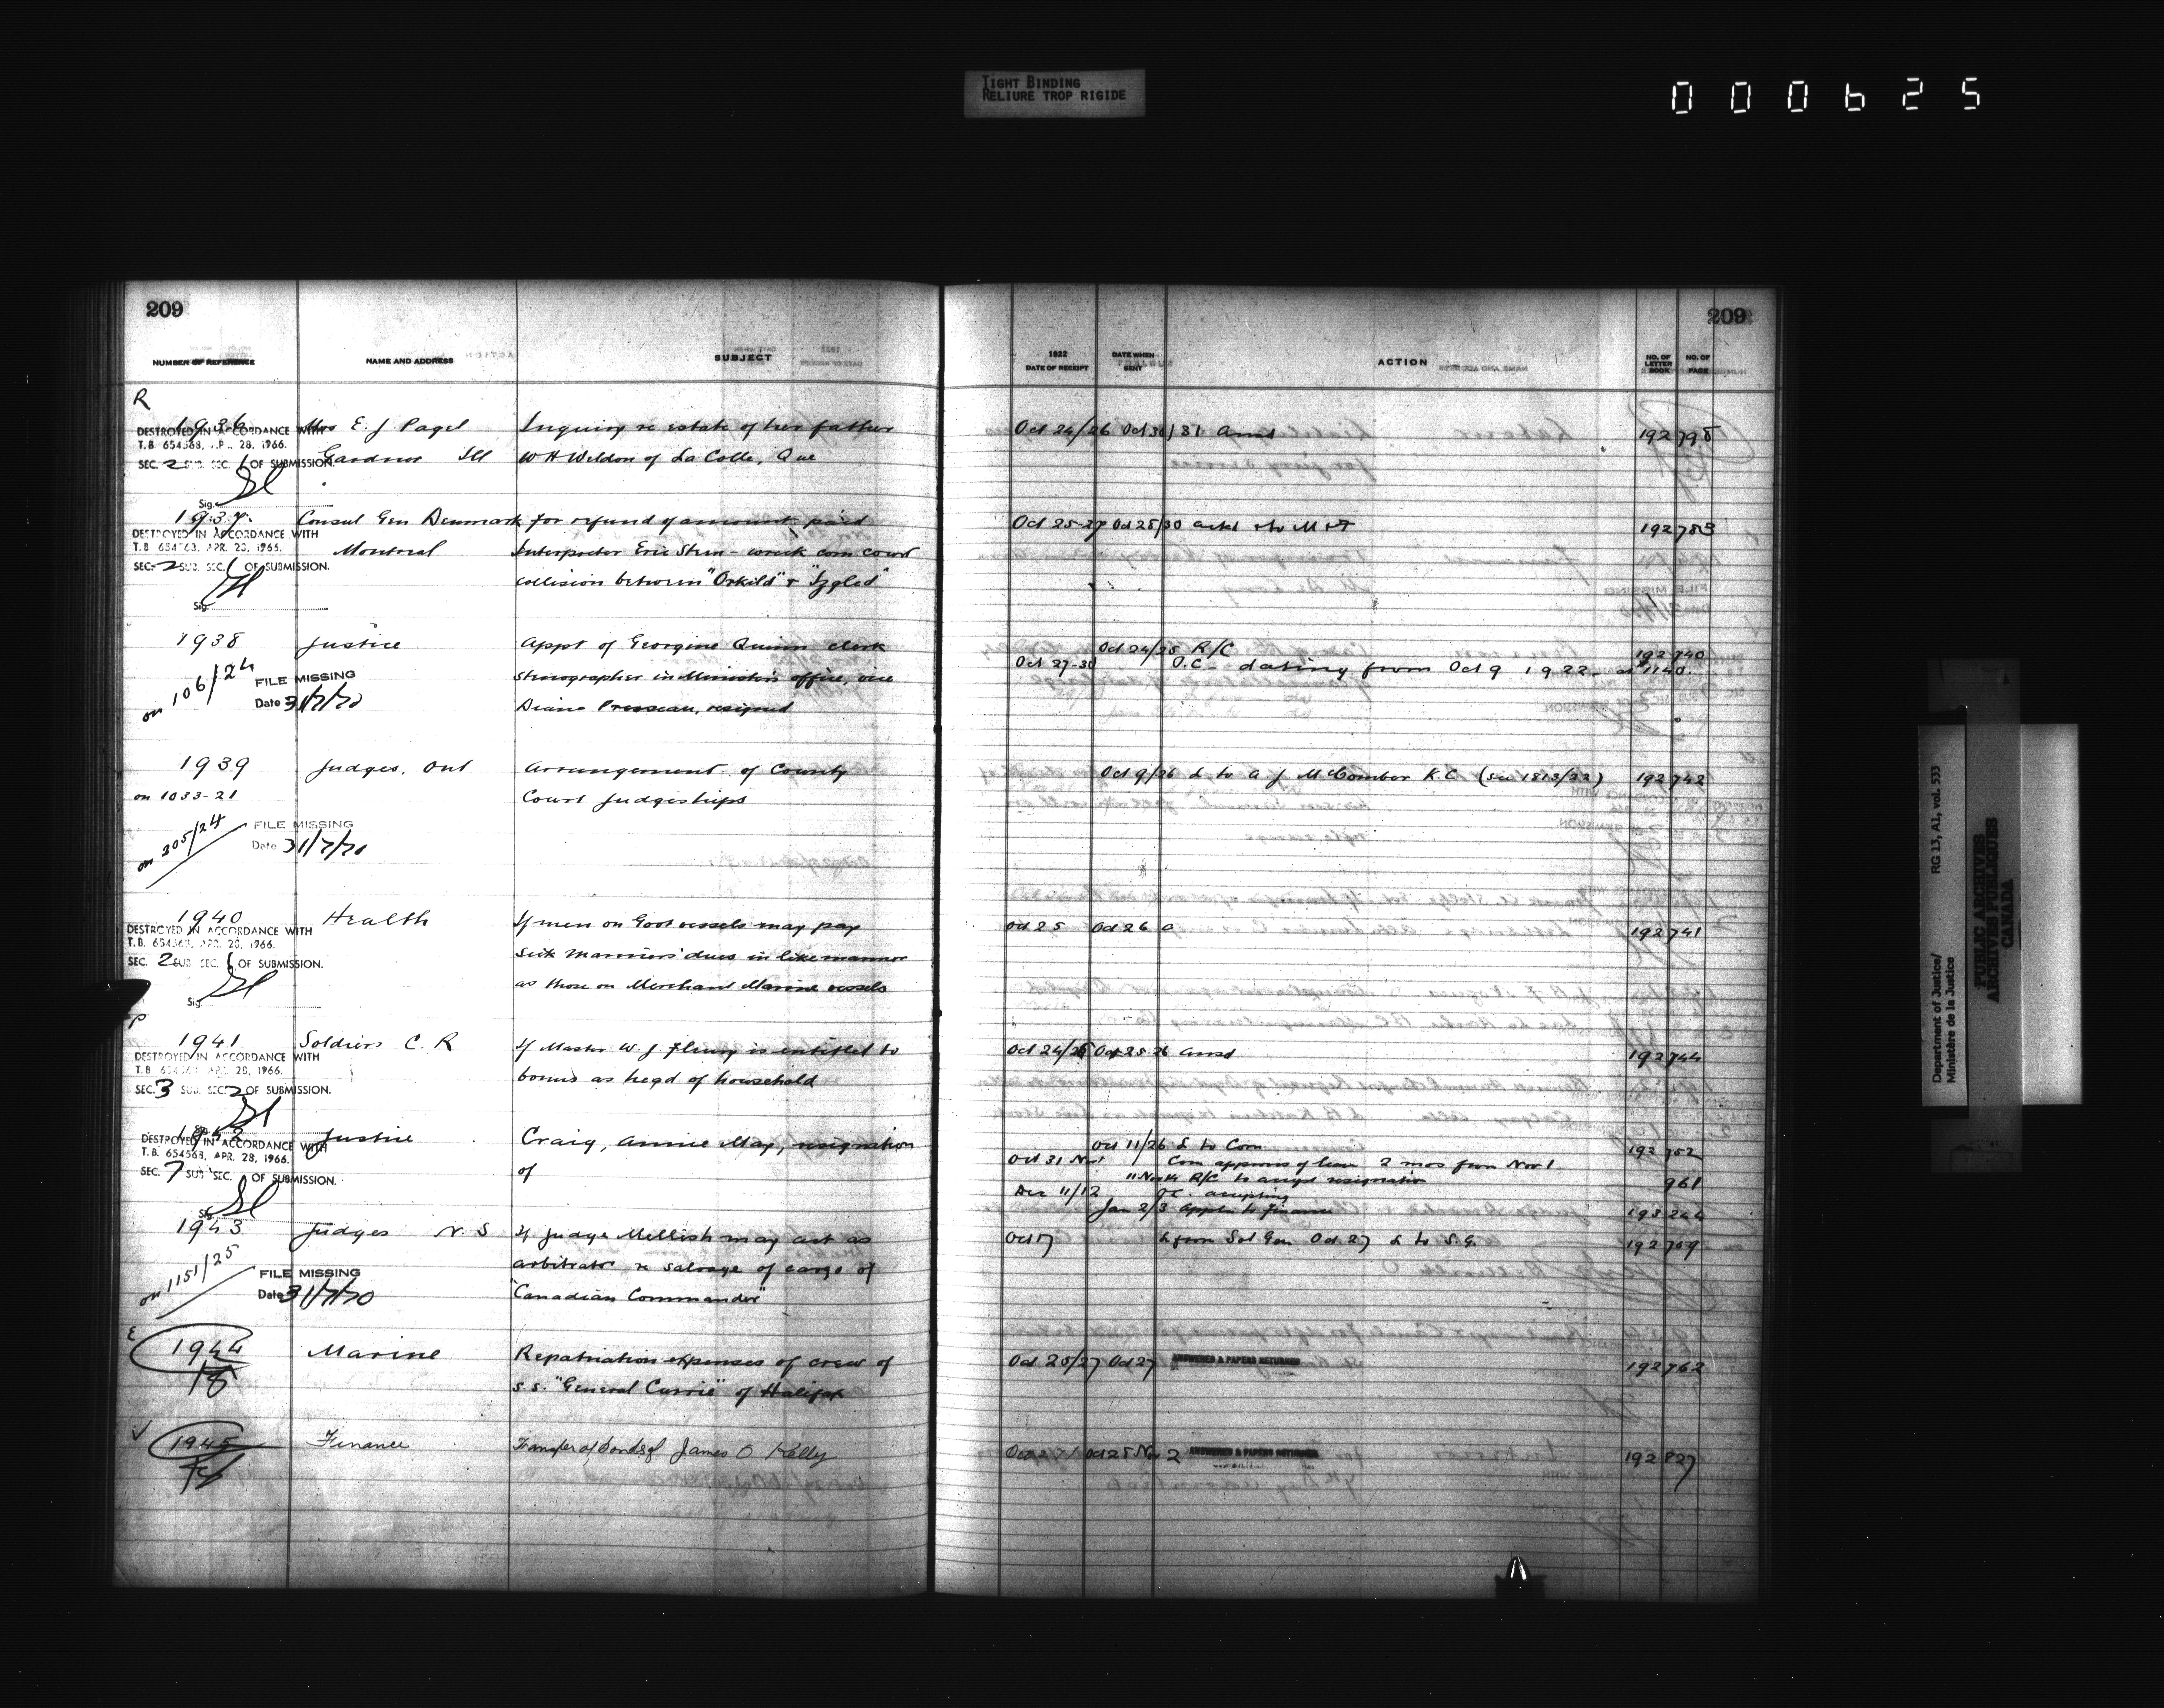 TIGHT BINDING
RELIURE TROP RIGIDE
000625
209
NUMBER OF REFERENCE NAME AND ADDRESS SUBJECT
R
1936 Mrs E. J Pagel Inquiry re estate of her father
DESTROYED IN ACCORDANCE WITH
T.B. 654568, APR. 28, 1966.
Gardner Ill W H Weldon of La Colle, Que
SEC. 2 SUB. SEC. 1 OF SUBMISSION.
Sig.
1937 Consul Gen Denmark for refund of amount paid
DESTROYED IN ACCORDANCE WITH
T.B. 654568, APR. 28, 1966.
Montreal Interpreter Eric Stern - wreck com court
SEC. 2 SUB. SEC. 1 OF SUBMISSION.
collision between "Orkild" &
Sig.
1938 Justice Appt of Georgine Quinn clerk
on 106/24 FILE MISSING stenographer in Minister's office, vice
Date 31/7/70 Diana resigned
1939 Judges, Ont Arrangement of County
on 1033-21 Court Judgeships
on 305/24 FILE MISSING
Date 31/7/70
1940 Health If men on Govt vessels may pay
DESTROYED IN ACCORDANCE WITH
T.B. 654568, APR. 28, 1966.
sick mariners' dues in like manner
SEC. 2 SUB. SEC. 1 OF SUBMISSION.
as those on Merchant Marine vessels
Sig.
P
1941 Soldiers C. R If Master W. J. Fleury is entitled to
DESTROYED IN ACCORDANCE WITH
T.B. 654568, APR. 28, 1966.
bonus as head of household
SEC. 3 SUB. SEC. 2 OF SUBMISSION.
1942 Justice Craig, Annie May, resignation
DESTROYED IN ACCORDANCE WITH
T.B. 654568, APR. 28, 1966.
of
SEC. 7 SUB. SEC. OF SUBMISSION.
Sig.
1943 Judges N. S If Judge Mellish may act as
on 1151/25 arbitrator re salvage of cargo of
FILE MISSING
Date 31/7/70 "Canadian Commander"
E
1944 Marine Repatriation expenses of crew of
18 s.s. "General Currie" of Halifax
1945 Finance Transfer of bonds of James O Kelly
209
1922
DATE OF RECEIPT DATE WHEN SENT ACTION NO. OF LETTER BOOK NO. OF PAGE
Oct 24/26 Oct 30/31 ansd 192 798
Oct 25-27 Oct 28/30 ackd & to M & F 192 783
Oct 24/25 R/C 192 740
Oct 27-30 O.C. dating from Oct 9 1922 at $1140.
Oct 9/26 L to A. J McComber K.C (see 1813/22) 192 742
Oct 25 Oct 26 a 192 741
Oct 24/25 Oct 25 26 ansd 192 744
Oct 11/26 L to Com 192 752
Oct 31 Nov 1 Com approves of leave 2 mos from Nov 1
11 Nov 14 R/C to accept resignation 961
Dec 11/12 O.C. accepting
Jan 2/3 Appln to Finance 193 244
Oct 17 L from Sol Gen Oct 27 L to S.G. 192 709
Oct 25/27 Oct 27 ANSWERED & PAPERS RETURNED 192 762
Oct 28 Nov 2 ANSWERED & PAPERS RETURNED 192 827
Department of Justice/ RG 13, A1, vol. 533
Ministère de la Justice
PUBLIC ARCHIVES
ARCHIVES PUBLIQUES
CANADA